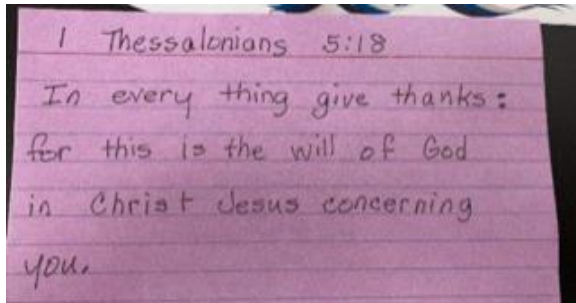 1 Thessalonians 5:18
In every thing give thanks:
for this is the will of God
in Christ Jesus concerning
you.